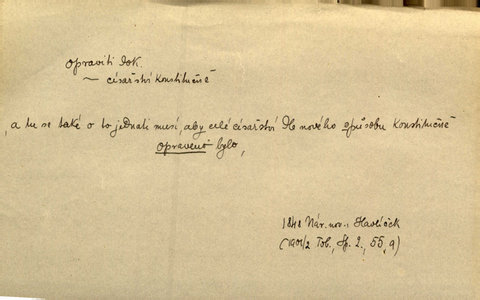 opraviti dok.
~ císařství konstitučně
„a tu se také o to jednati musí, aby celé císařství dle nového způsobu konstitučně
opraveno bylo,
1848 Nár. nov. Havlíček
(1901/2 Tob., Sp. 2, 55, 9)